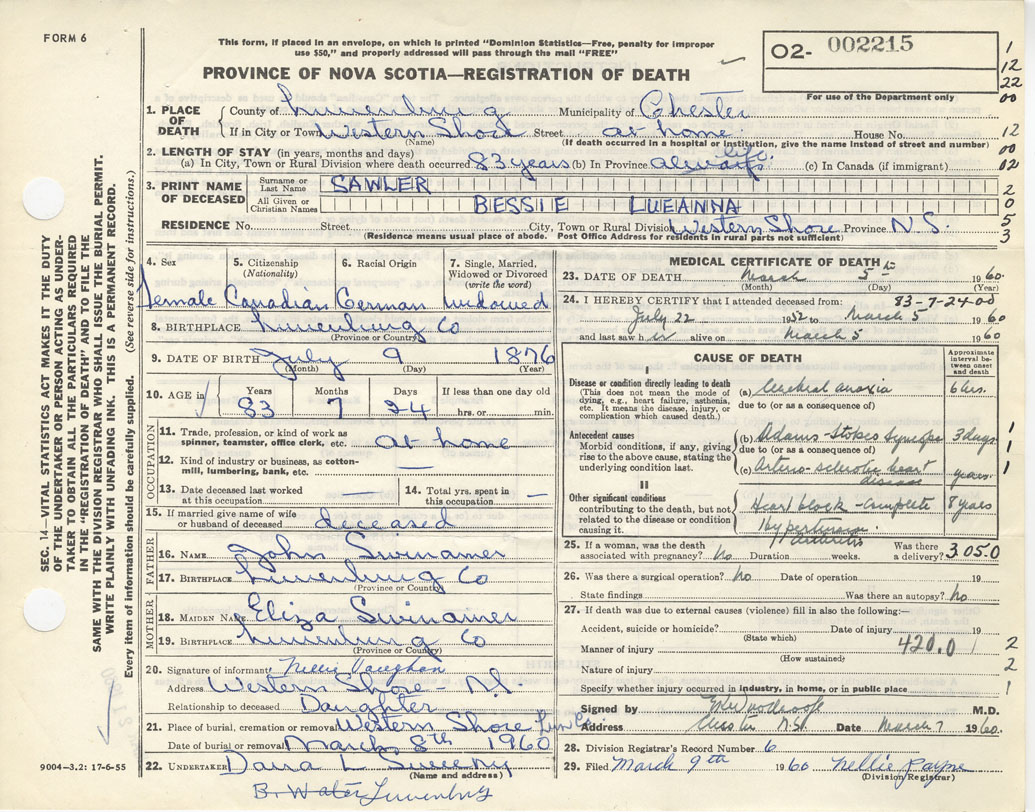 FORM 6
This form, if placed in an envelope, on which is printed "Dominion Statistics—Free, penalty for improper
use $50," and properly addressed will pass through the mail "FREE"
PROVINCE OF NOVA SCOTIA—REGISTRATION OF DEATH
02- 002215
For use of the Department only
1
12
22
00
12
00
02
2
0
5
3
1. PLACE OF DEATH County of Lunenburg Municipality of Chester
If in City or Town Western Shore Street at home House No.
(Name) (If death occurred in a hospital or institution, give the name instead of street and number)
2. LENGTH OF STAY (in years, months and days)
(a) In City, Town or Rural Division where death occurred 83 years (b) In Province always life. (c) In Canada (if immigrant)
3. PRINT NAME OF DECEASED Surname or Last Name SAWLER
All Given or Christian Names BESSIE LUEANNA
RESIDENCE No. Street City, Town or Rural Division Western Shore Province N.S.
(Residence means usual place of abode. Post Office Address for residents in rural parts not sufficient)
SEC. 14—VITAL STATISTICS ACT MAKES IT THE DUTY
OF THE UNDERTAKER OR PERSON ACTING AS UNDER-
TAKER TO OBTAIN ALL THE PARTICULARS REQUIRED
IN THE "REGISTRATION OF DEATH" AND TO FILE THE
SAME WITH THE DIVISION REGISTRAR WHO SHALL ISSUE THE BURIAL PERMIT.
WRITE PLAINLY WITH UNFADING INK. THIS IS A PERMANENT RECORD.
Every item of information should be carefully supplied. (See reverse side for instructions.)
4. Sex 5. Citizenship (Nationality) 6. Racial Origin 7. Single, Married, Widowed or Divorced (write the word)
Female Canadian German widowed
8. BIRTHPLACE Lunenburg Co
(Province or Country)
9. DATE OF BIRTH July 9 1876
(Month) (Day) (Year)
10. AGE in Years Months Days If less than one day old
83 7 24 hrs. or min.
OCCUPATION
11. Trade, profession, or kind of work as spinner, teamster, office clerk, etc. at home
12. Kind of industry or business, as cotton-mill, lumbering, bank, etc. —
13. Date deceased last worked at this occupation — 14. Total yrs. spent in this occupation —
15. If married give name of wife or husband of deceased deceased
FATHER
16. NAME John Swinamer
17. BIRTHPLACE Lunenburg Co
(Province or Country)
MOTHER
18. MAIDEN NAME Eliza Swinamer
19. BIRTHPLACE Lunenburg Co
(Province or Country)
20. Signature of informant Nellie Vaughan
Address Western Shore - N.S.
Relationship to deceased Daughter
21. Place of burial, cremation or removal Western Shore Lun Co
Date of burial or removal March 8th 1960
22. UNDERTAKER Dana L Sweeny
(Name and address)
B. Water Lunenburg
9004-3.2: 17-6-55
MEDICAL CERTIFICATE OF DEATH
23. DATE OF DEATH March 5th 1960
(Month) (Day) (Year)
83-7-24-00
24. I HEREBY CERTIFY that I attended deceased from:
July 22 1952 to March 5 1960
and last saw her alive on March 5 1960
CAUSE OF DEATH
Approximate interval between onset and death
I
Disease or condition directly leading to death
(This does not mean the mode of dying, e.g., heart failure, asthenia, etc. It means the disease, injury, or complication which caused death.)
(a) Cerebral anoxia 6 hrs.
due to (or as a consequence of)
Antecedent causes
Morbid conditions, if any, giving rise to the above cause, stating the underlying condition last.
(b) Adams-Stokes Syncope 3 days 1
due to (or as a consequence of)
(c) Arterio-sclerotic heart disease years. 1
II
Other significant conditions
contributing to the death, but not related to the disease or condition causing it.
Heart block - Complete 8 years
Hypertension.
arthritis
25. If a woman, was the death associated with pregnancy? no Duration weeks. Was there a delivery? 3050
26. Was there a surgical operation? no Date of operation 19
State findings Was there an autopsy? no
27. If death was due to external causes (violence) fill in also the following:—
Accident, suicide or homicide? Date of injury 19
(State which)
Manner of injury 420.0 2
(How sustained)
Nature of injury 2
Specify whether injury occurred in industry, in home, or in public place 1
Signed by M.D.
Address N.S. Date March 7 1960
28. Division Registrar's Record Number 6
29. Filed March 9th 1960 Nellie Payne
(Division Registrar)